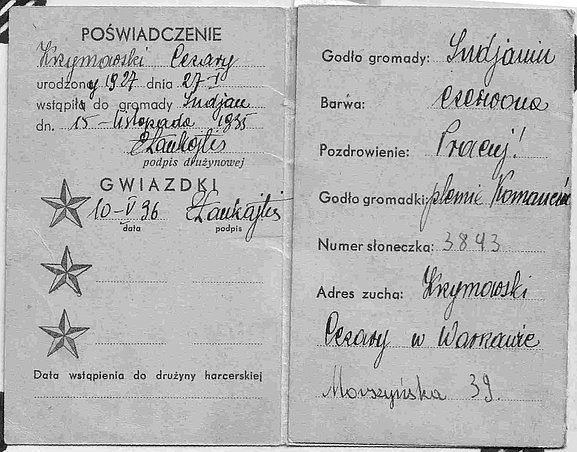 POŚWIADCZENIE
Krzymowski Cezary
urodzony 1927 dnia 27-I
wstąpiła do gromady Indjan
dn. 15-listopada 1935
podpis drużynowej
GWIAZDKI
10-V 36
data podpis
Data wstąpienia do drużyny harcerskiej
Godło gromady: Indjanin
Barwa: Czerwona
Pozdrowienie: Pracuj!
Godło gromadki: plemię Komancza
Numer słoneczka: 3843
Adres zucha: Krzymowski
Cezary w Warszawie
Morszyńska 39.